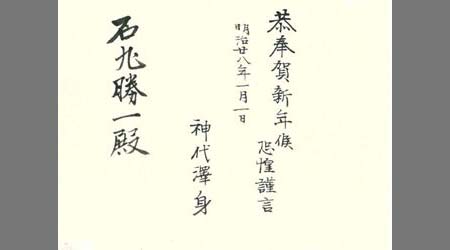 恭奉賀新年候
恐惶謹言
明治廿八年一月一日
神代澤身
石丸勝一殿